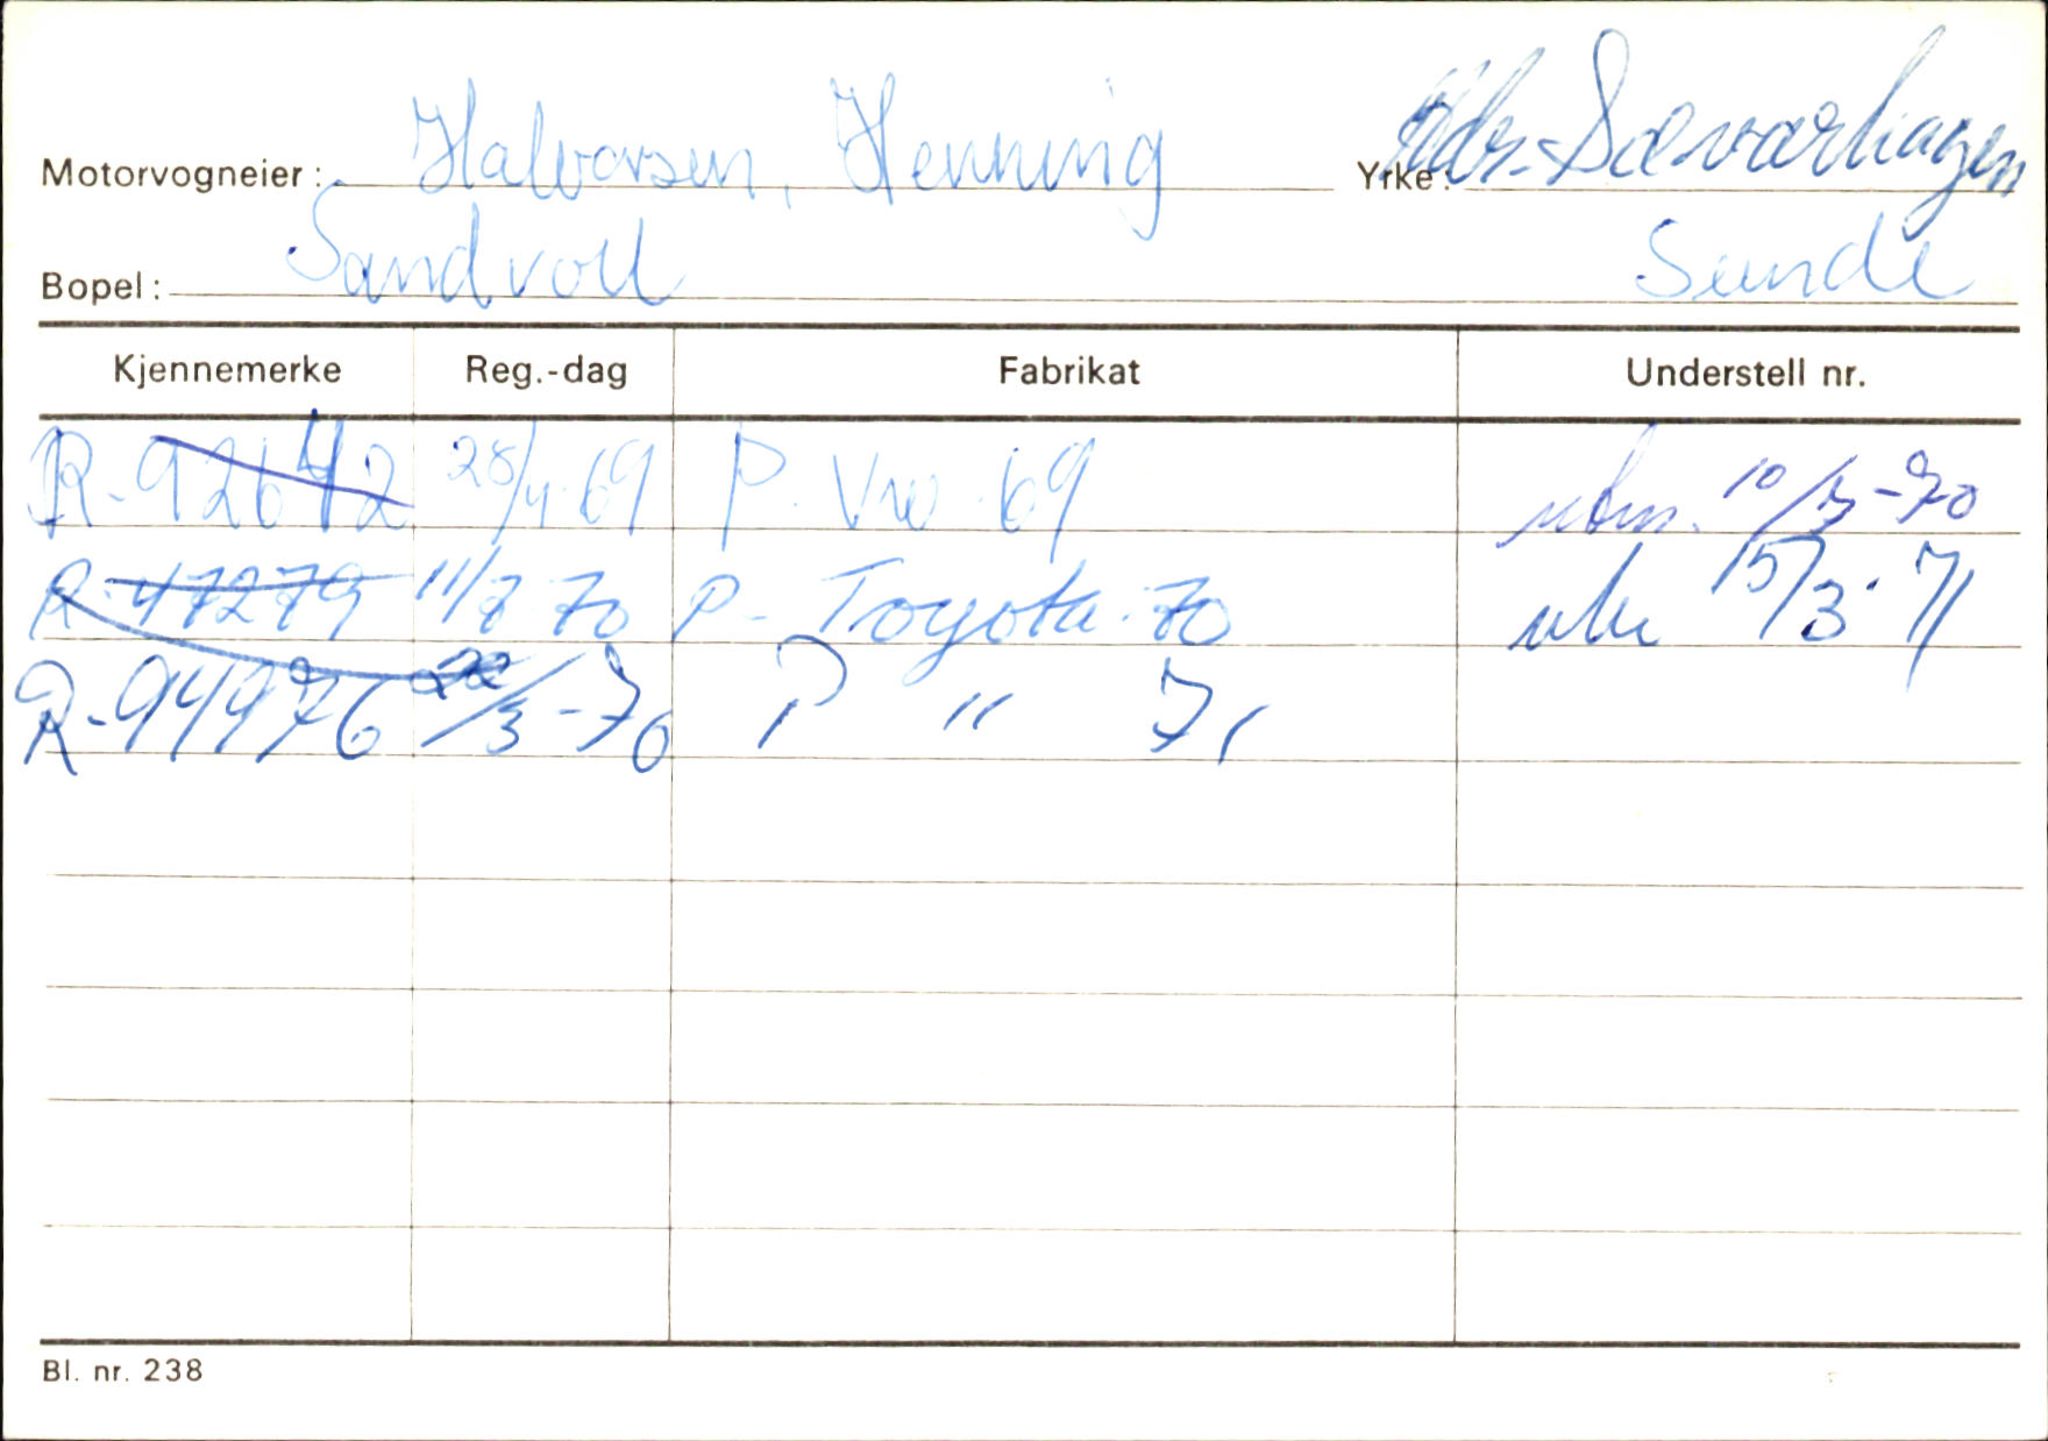 Motorvogneier: Halvorsen, Henning Yrke: Adr. Sævarhagen
Bopel: Sandvoll Sunde
Kjennemerke Reg.-dag Fabrikat Understell nr.
R-92642 28/4-69 P. VW 69 10/3-70
R-47279 11/7 70 P- Toyota 70 15/3-71
R-94976 22/3-70 P " 71
Bl. nr. 238